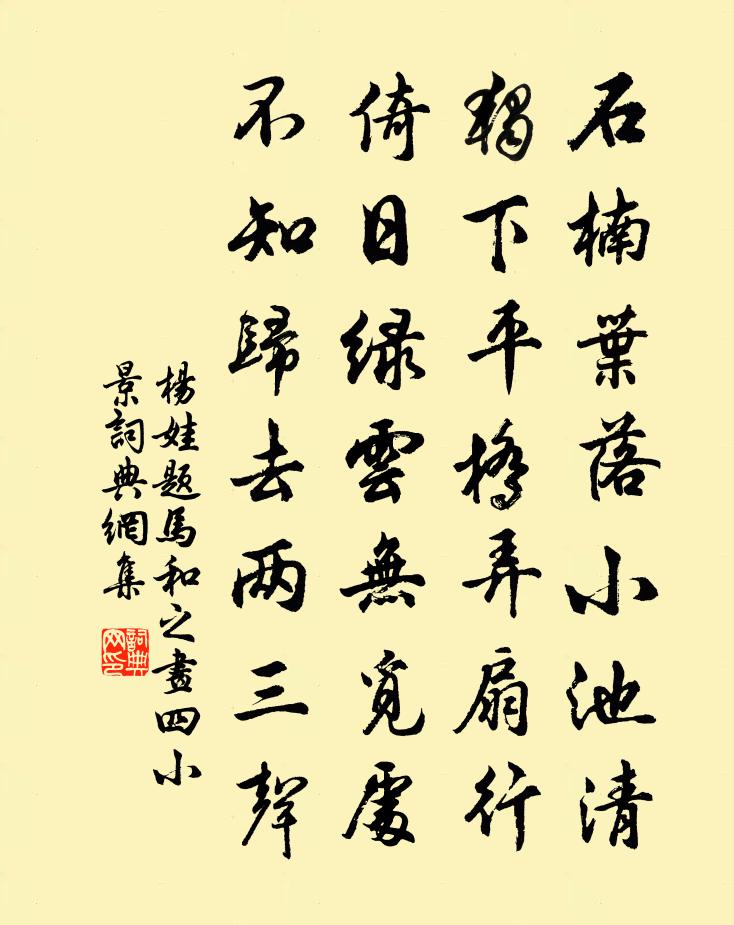 石楠葉落小池清
獨下平橋弄扇行
倚日綠雲無覓處
不知歸去兩三聲
楊娃題馬和之畫四小
景詞典網集
詞典
网印